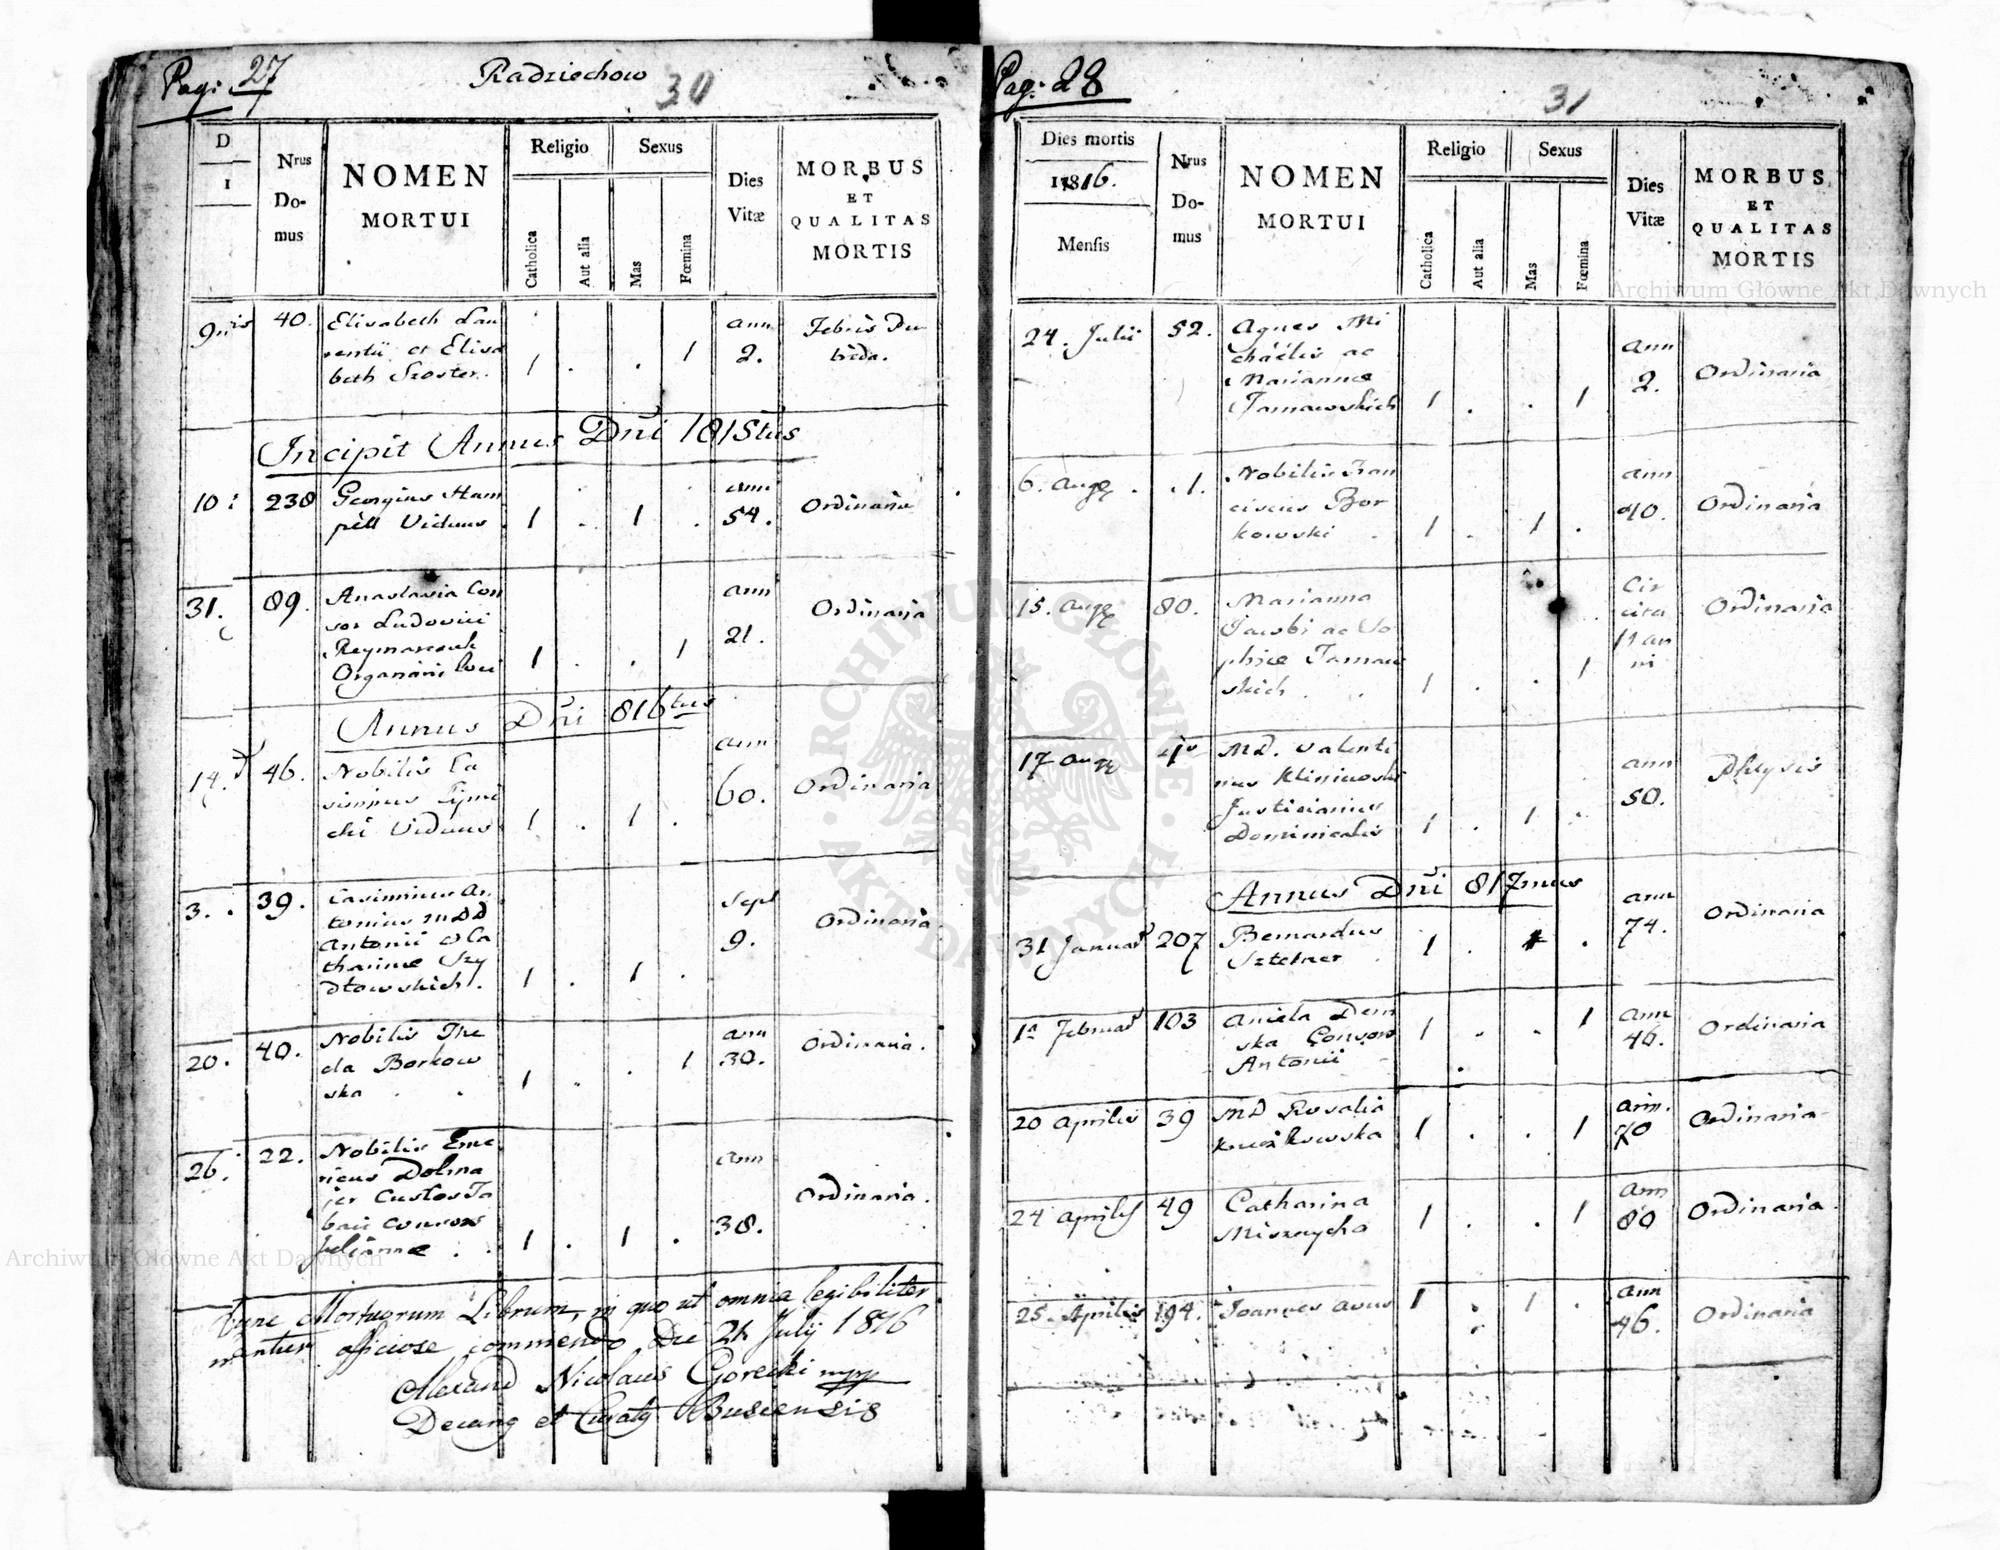 Pag: 27
Radziechow
30
D
I
Nrus
Do-
mus
NOMEN
MORTUI
Religio
Sexus
Catholica
Aut alia
Mas
Fœmina
Dies
Vitæ
MORBUS
ET
QUALITAS
MORTIS
9nris 40. Elisabeth Lau
rentii et Elisa
beth Szoster. 1 . . 1
ann
2.
Febris Pu
trida.
Incipit Annus Dni 1815tus
10: 238 Georgius Ham
pell Viduus 1 . 1 .
ann
54.
Ordinaria
31. 89. Anastasia Con
sor Ludovici
Organarii loci 1 . . 1
ann
21.
Ordinaria
Annus Dni 816tus
14. 46. Nobilis Ca
simirus
cki Viduus 1 . 1 .
ann
60.
Ordinaria
3. 39. Casimirus An
tonius MDD
Antonii & Ca
tharinæ Szy
dłowskich. 1 . 1 .
Sept
9.
Ordinaria
20. 40. Nobilis The
cla Borkow
ska 1 . . 1
ann
30.
Ordinaria.
26. 22. Nobilis Eme
ricus Dolina
jer Custos Ta
baci consors
Julianæ 1 . 1 .
ann
38.
Ordinaria.
Mortuorum Librum, in quo ut omnia legibiliter
officiose commendo Die 24 Julij 1816
Alexand Nicolaus Gorecki mpp
Decang et Curatg Buscensis
Pag: 28
31
Dies mortis
1816.
Mensis
Nrus
Do-
mus
NOMEN
MORTUI
Religio
Sexus
Catholica
Aut alia
Mas
Fœmina
Dies
Vitæ
MORBUS
ET
QUALITAS
MORTIS
24. Julii 52. Agnes Mi
chaelis ac
Mariannæ
Tarnawskich 1 . . 1
ann
2.
Ordinaria
6. Augg . 1. Nobilis Fran
ciscus Bor
kowski 1 . 1 .
ann
40.
Ordinaria
15. Augg 80. Marianna
Jacobi ac So
phiæ Tarnaw
skich . 1 . . 1
Cir
citer
11 an
ni
Ordinaria
17 Augg MD. Valenti
nus
Justiciarius
Dominicalis 1 . 1 .
ann
50.
Phtysis
Annus Dni 817mus
31 Januar 207 Bernardus
Sztelner 1 . 1 .
ann
74.
Ordinaria
1a Februar 103 Aniela Dem
ska Consors
Antonii 1 . . 1
ann
46.
Ordinaria
20 Aprilis 39 MD Rosalia 1 . . 1
ann.
70
Ordinaria
24 Aprilis 49 Catharina
Misznycha 1 . . 1
ann
80
Ordinaria.
25. Aprilis 194. Joannes 1 . 1 .
ann
46.
Ordinaria
ARCHIWUM GŁÓWNE AKT DAWNYCH
Archiwum Główne Akt Dawnych
Archiwum Główne Akt Dawnych